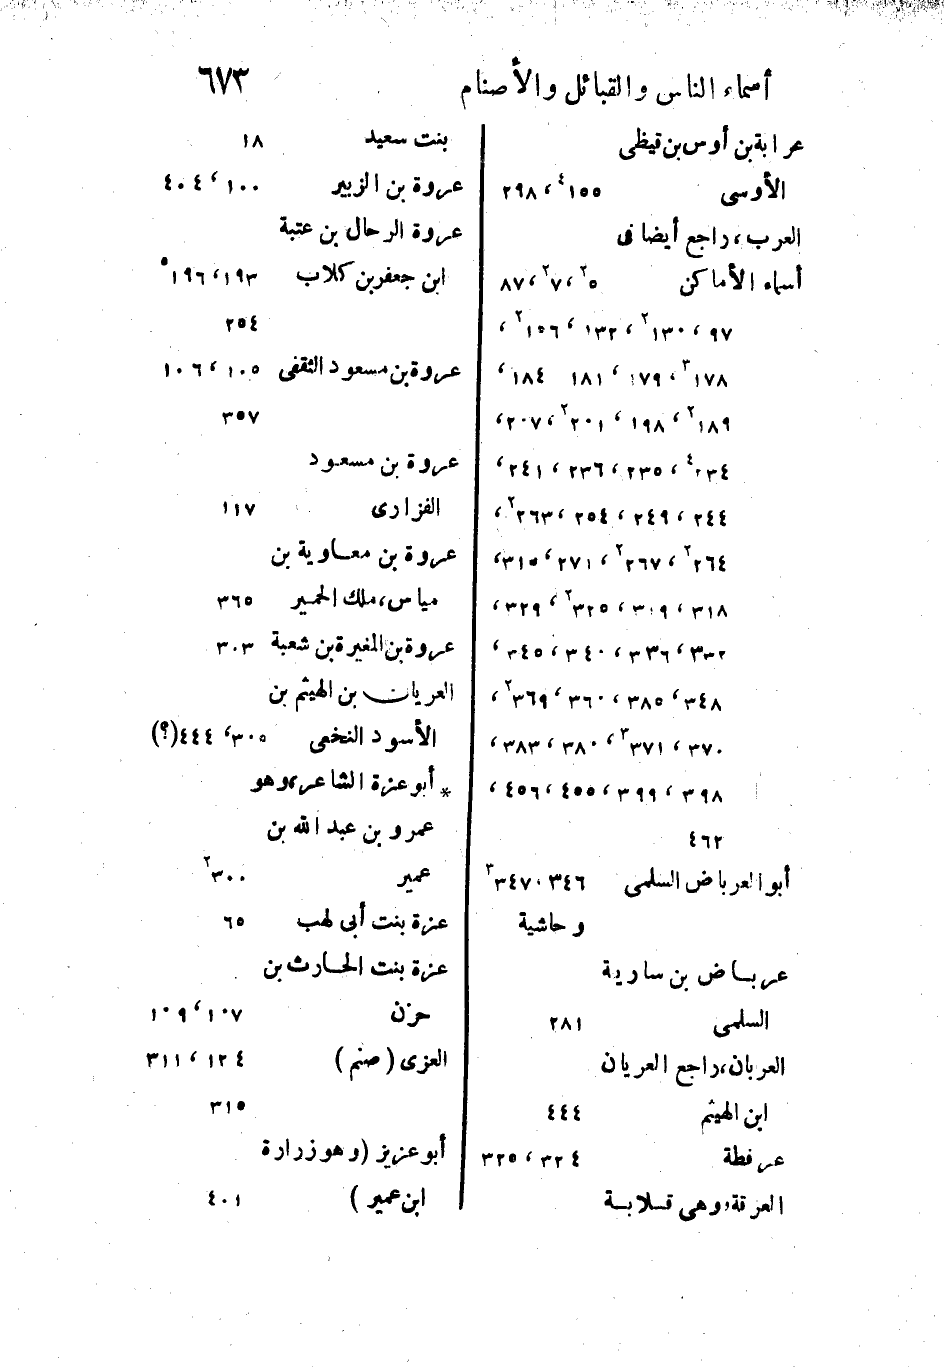 أسماء الناس والقبائل والأصنام ٦٧٣
عرابة بن أوس بن قيظى
الأوسى ١٥٥⁴، ٢٩٨
العرب، راجع أيضا فى
أسماء الأماكن ٥²، ٧²، ٨٧
٩٧، ١٣٠²، ١٣٢، ١٥٦²،
١٧٨³، ١٧٩، ١٨١ ١٨٤،
١٨٩²، ١٩٨، ٢٠١²، ٢٠٧،
٢٣٤⁴، ٢٣٥، ٢٣٦، ٢٤١،
٢٤٤، ٢٤٩، ٢٥٤، ٢٦٣²،
٢٦٤²، ٢٦٧²، ٢٧١، ٣١٥،
٣١٨، ٣١٩، ٣٢٥²، ٣٢٩،
٣٣٢، ٣٣٦، ٣٤٠، ٣٤٥،
٣٤٨، ٣٨٥، ٣٦٠، ٣٦٩²،
٣٧٠، ٣٧١³، ٣٨٠، ٣٨٣،
٣٩٨، ٣٩٩، ٤٥٥، ٤٥٦،
٤٦٢
أبو العرباض السلمى ٣٤٦، ٣٤٧³
وحاشية
عرباض بن سارية
السلمى ٢٨١
العربان، راجع العريان
ابن الهيثم ٤٤٤
عرفطة ٣٢٤، ٣٢٥
العرقة، وهى قلابة
بنت سعيد ١٨
عروة بن الزبير ١٠٠، ٤٠٤
عروة الرحال بن عتبة
ابن جعفر بن كلاب ١٩٣، ١٩٦⁵
٢٥٤
عروة بن مسعود الثقفى ١٠٥، ١٠٦
٣٥٧
عروة بن مسعود
الفزارى ١١٧
عروة بن معاوية بن
مياس، ملك الحمير ٣٦٥
عروة بن المغيرة بن شعبة ٣٠٣
العريان بن الهيثم بن
الأسود النخعى ٣٠٥، ٤٤٤(؟)
* أبو عزة الشاعر، وهو
عمرو بن عبد الله بن
عمير ٣٠٠²
عزة بنت أبى لهب ٦٥
عزة بنت الحارث بن
حزن ١٠٧، ١٠٩
العزى (صنم) ١٢٤، ٣١١
٣١٥
أبو عزيز (وهو زرارة
ابن عمير) ٤٠١